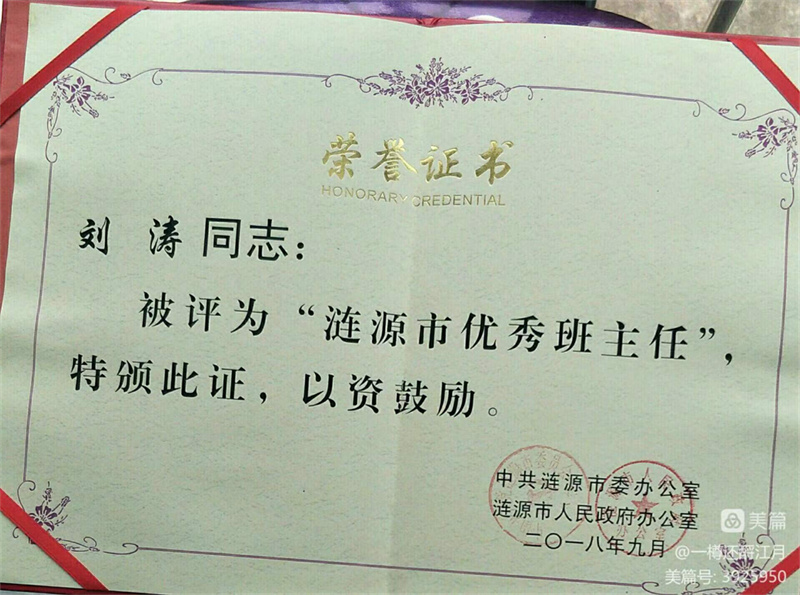 荣誉证书
HONORARY CREDENTIAL
刘 涛 同志：
被评为“涟源市优秀班主任”，
特颁此证，以资鼓励。
中共涟源市委办公室
涟源市人民政府办公室
二〇一八年九月
美篇
@一樽还酹江月
美篇号: 3925950